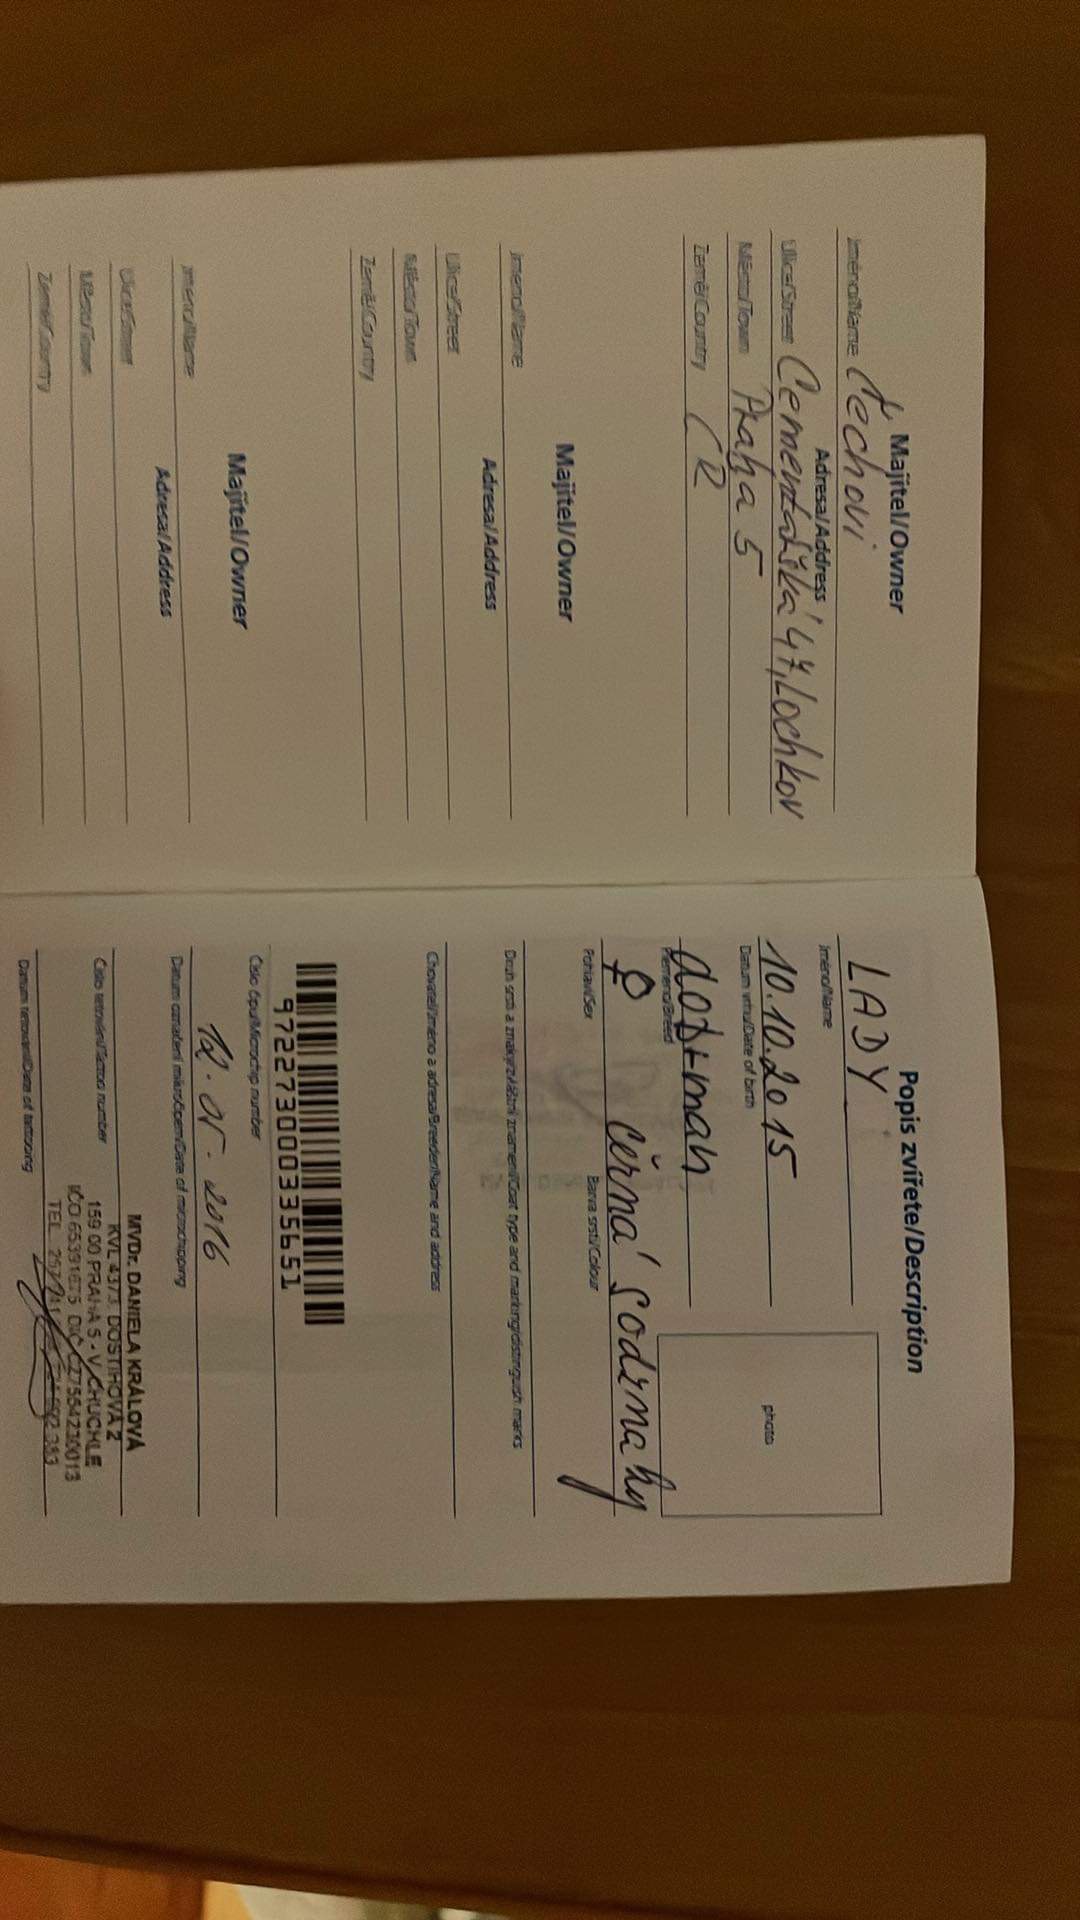 Majitel/Owner
Jméno/Name Čechovi
Adresa/Address
Ulice/Street Cementářská 47, Lochkov
Město/Town Praha 5
Země/Country ČR
Majitel/Owner
Jméno/Name
Adresa/Address
Ulice/Street
Město/Town
Země/Country
Majitel/Owner
Jméno/Name
Adresa/Address
Ulice/Street
Město/Town
Země/Country
Popis zvířete/Description
LADY
Jméno/Name
10.10.2015
Datum vrhu/Date of birth
photo
Plemeno/Breed
♀ černá
Pohlaví/Sex Barva srsti/Colour
Druh srsti a znaky/zvláštní znamení/Coat type and marking/distinguish marks
Chovatel/Jméno a adresa/Breeder/Name and address
972273000335651
Číslo čipu/Microchip number
2016
Datum označení mikročipem/Date of microchipping
MVDr. DANIELA KRÁLOVÁ
KVL 4373, DOSTIHOVÁ 2
Číslo tetování/Tattoo number
159 00 PRAHA 5 - V. CHUCHLE
IČO DIČ CZ7554230013
TEL.
Datum tetování/Date of tattooing